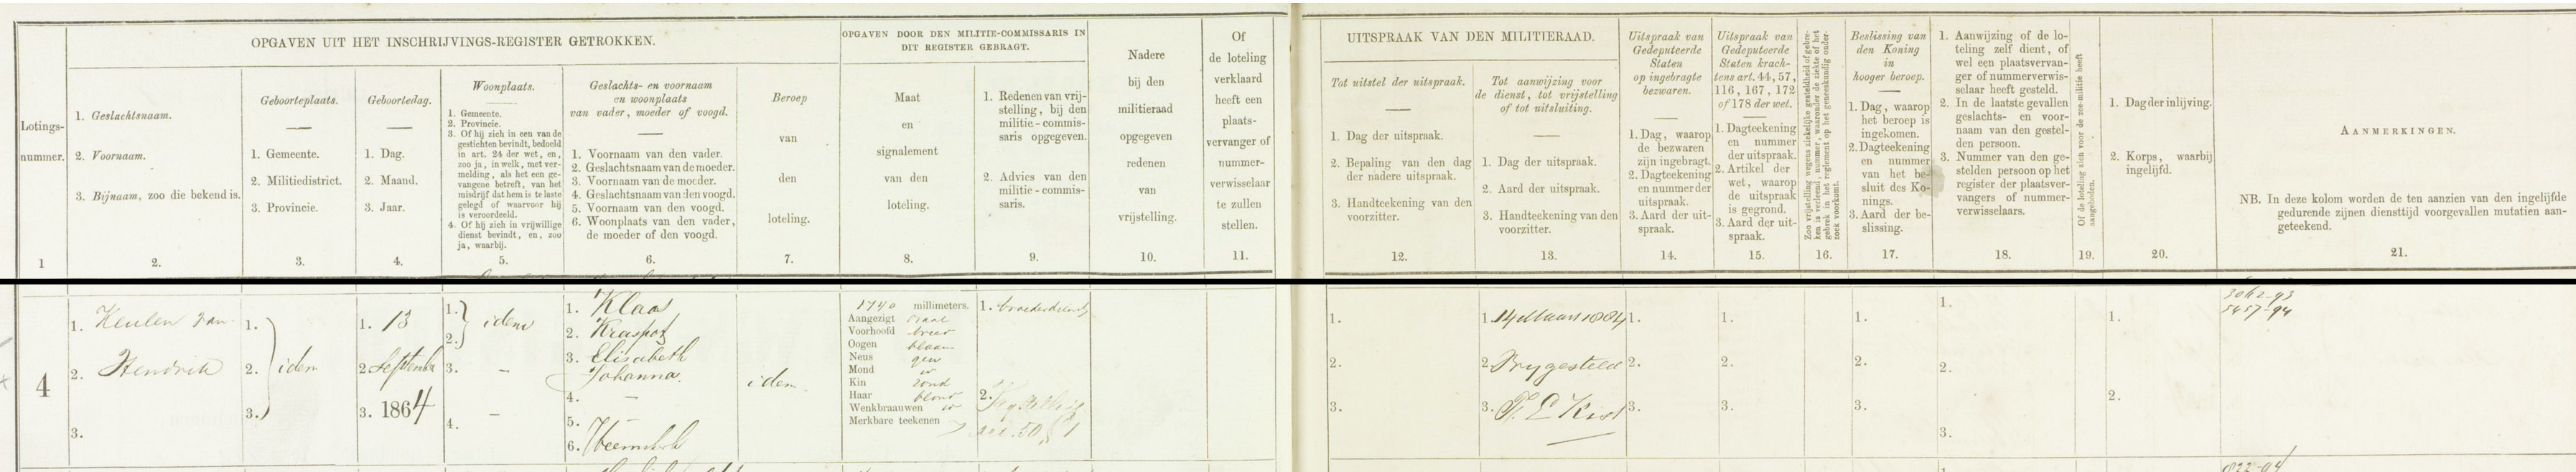 OPGAVEN UIT HET INSCHRIJVINGS-REGISTER GETROKKEN.
OPGAVEN DOOR DEN MILITIE-COMMISSARIS IN
DIT REGISTER GEBRAGT.
Lotings-
nummer.
1
1. Geslachtsnaam.
2. Voornaam.
3. Bijnaam, zoo die bekend is.
2.
Geboorteplaats.
1. Gemeente.
2. Militiedistrict.
3. Provincie.
3.
Geboortedag.
1. Dag.
2. Maand.
3. Jaar.
4.
Woonplaats.
1. Gemeente.
2. Provincie.
3. Of hij zich in een van de
gestichten bevindt, bedoeld
in art. 24 der wet, en,
zoo ja, in welk, met ver-
melding, als het een ge-
vangene betreft, van het
misdrijf dat hem is te laste
gelegd of waarvoor hij
is veroordeeld.
4. Of hij zich in vrijwillige
dienst bevindt, en, zoo
ja, waarbij.
5.
Geslachts- en voornaam
en woonplaats
van vader, moeder of voogd.
1. Voornaam van den vader.
2. Geslachtsnaam van de moeder.
3. Voornaam van de moeder.
4. Geslachtsnaam van den voogd.
5. Voornaam van den voogd.
6. Woonplaats van den vader,
de moeder of den voogd.
6.
Beroep
van
den
loteling.
7.
Maat
en
signalement
van den
loteling.
8.
1. Redenen van vrij-
stelling, bij den
militie-commis-
saris opgegeven.
2. Advies van den
militie-commis-
saris.
9.
Nadere
bij den
militieraad
opgegeven
redenen
van
vrijstelling.
10.
Of
de loteling
verklaard
heeft een
plaats-
vervanger of
nummer-
verwisselaar
te zullen
stellen.
11.
UITSPRAAK VAN DEN MILITIERAAD.
Tot uitstel der uitspraak.
1. Dag der uitspraak.
2. Bepaling van den dag
der nadere uitspraak.
3. Handteekening van den
voorzitter.
12.
Tot aanwijzing voor
de dienst, tot vrijstelling
of tot uitsluiting.
1. Dag der uitspraak.
2. Aard der uitspraak.
3. Handteekening van den
voorzitter.
13.
Uitspraak van
Gedeputeerde
Staten
op ingebragte
bezwaren.
1. Dag, waarop
de bezwaren
zijn ingebragt.
2. Dagteekening
en nummer der
uitspraak.
3. Aard der uit-
spraak.
14.
Uitspraak van
Gedeputeerde
Staten krach-
tens art. 44, 57,
116, 167, 172
of 178 der wet.
1. Dagteekening
en nummer
der uitspraak.
2. Artikel der
wet, waarop
de uitspraak
is gegrond.
3. Aard der uit-
spraak.
15.
Zoo vrijstelling wegens ziekelijke gesteldheid of gebre-
ken is verleend, nummer, waaronder de ziekte of het
gebrek in het reglement op het geneeskundig onder-
zoek voorkomt.
16.
Beslissing van
den Koning
in
hooger beroep.
1. Dag, waarop
het beroep is
ingekomen.
2. Dagteekening
en nummer
van het be-
sluit des Ko-
nings.
3. Aard der be-
slissing.
17.
1. Aanwijzing of de lo-
teling zelf dient, of
wel een plaatsvervan-
ger of nummerverwis-
selaar heeft gesteld.
2. In de laatste gevallen
geslachts- en voor-
naam van den gestel-
den persoon.
3. Nummer van den ge-
stelden persoon op het
register der plaatsver-
vangers of nummer-
verwisselaars.
18.
Of de loteling zien voor de zee-militie heeft
aangeboden.
19.
1. Dag der inlijving.
2. Korps, waarbij
ingelijfd.
20.
AANMERKINGEN.
NB. In deze kolom worden de ten aanzien van den ingelijfde
gedurende zijnen diensttijd voorgevallen mutatien aan-
geteekend.
21.
4
1. Keulen van
2. Hendrik
3.
1.
2. idem
3.
1. 13
2. September
3. 1864
1.
2. idem
3. –
4. –
1. Klaas
2.
3. Elisabeth
Johanna.
4. –
5.
6.
idem
1740 millimeters.
Aangezigt ovaal
Voorhoofd breed
Oogen blaauw
Neus gew
Mond id
Kin rond
Haar blond
Wenkbraauwen id
Merkbare teekenen
1. broederdienst
2. Vrijstelling
art. 50
1.
2.
3.
1. 14 Maart 1884
2. Vrijgesteld
3. Kist
1.
2.
3.
1.
2.
3.
1.
2.
3.
1.
2.
3.
1.
2.
3062-93
5457-94